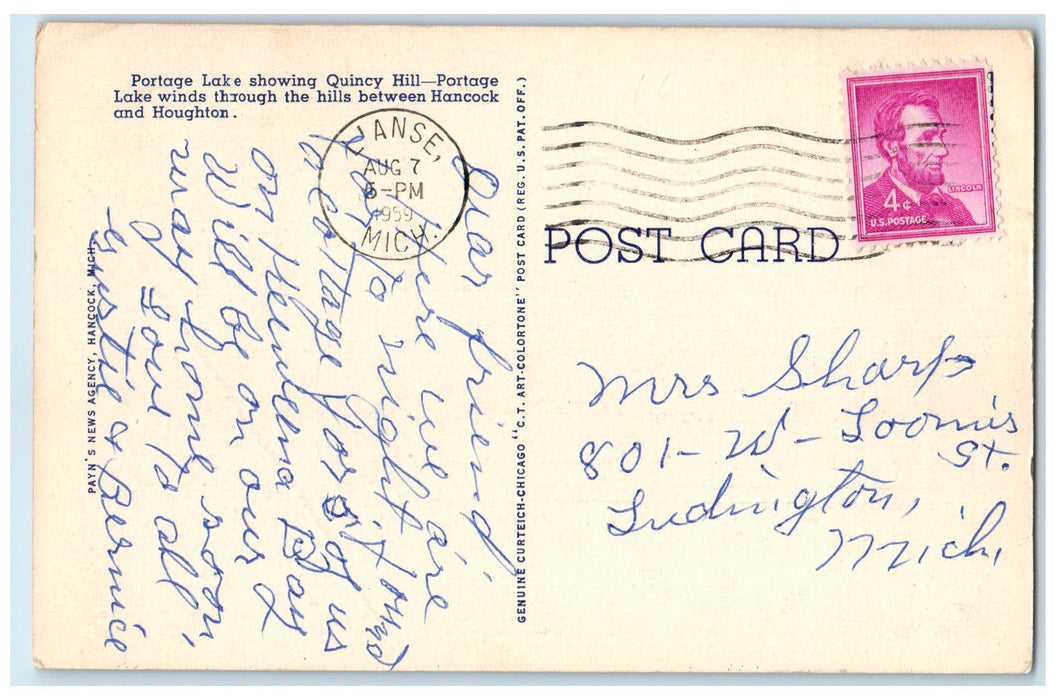 Portage Lake showing Quincy Hill—Portage
Lake winds through the hills between Hancock
and Houghton.
L'ANSE,
AUG 7
5-PM
1959
MICH.
LINCOLN
4¢
U.S. POSTAGE
POST CARD
PAYN'S NEWS AGENCY, HANCOCK, MICH.
GENUINE CURTEICH-CHICAGO "C.T. ART-COLORTONE" POST CARD (REG. U.S. PAT. OFF.)
Dear friend
Here we are
to right
a cottage for of us
on Bay
Will be on our
way home soon,
Love to all,
Gustie & Bernice
Mrs Sharp
801-W-Loomis
St.
Ludington,
Mich,